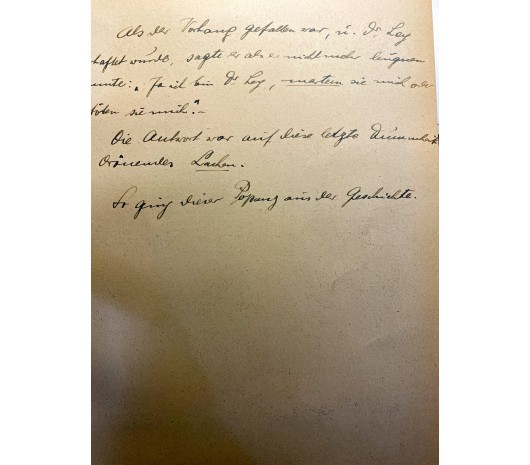 Als der Vorhang gefallen war, u. Dr. Ley
haftet wurde, sagte er als er nicht mehr leugnen
nnte: „Ja ich bin Dr. Ley, martern sie mich oder
töten sie mich.“–
Die Antwort war auf diese letzte Dummheit
drönendes Lachen.
So ging dieser Popanz aus der Geschichte.